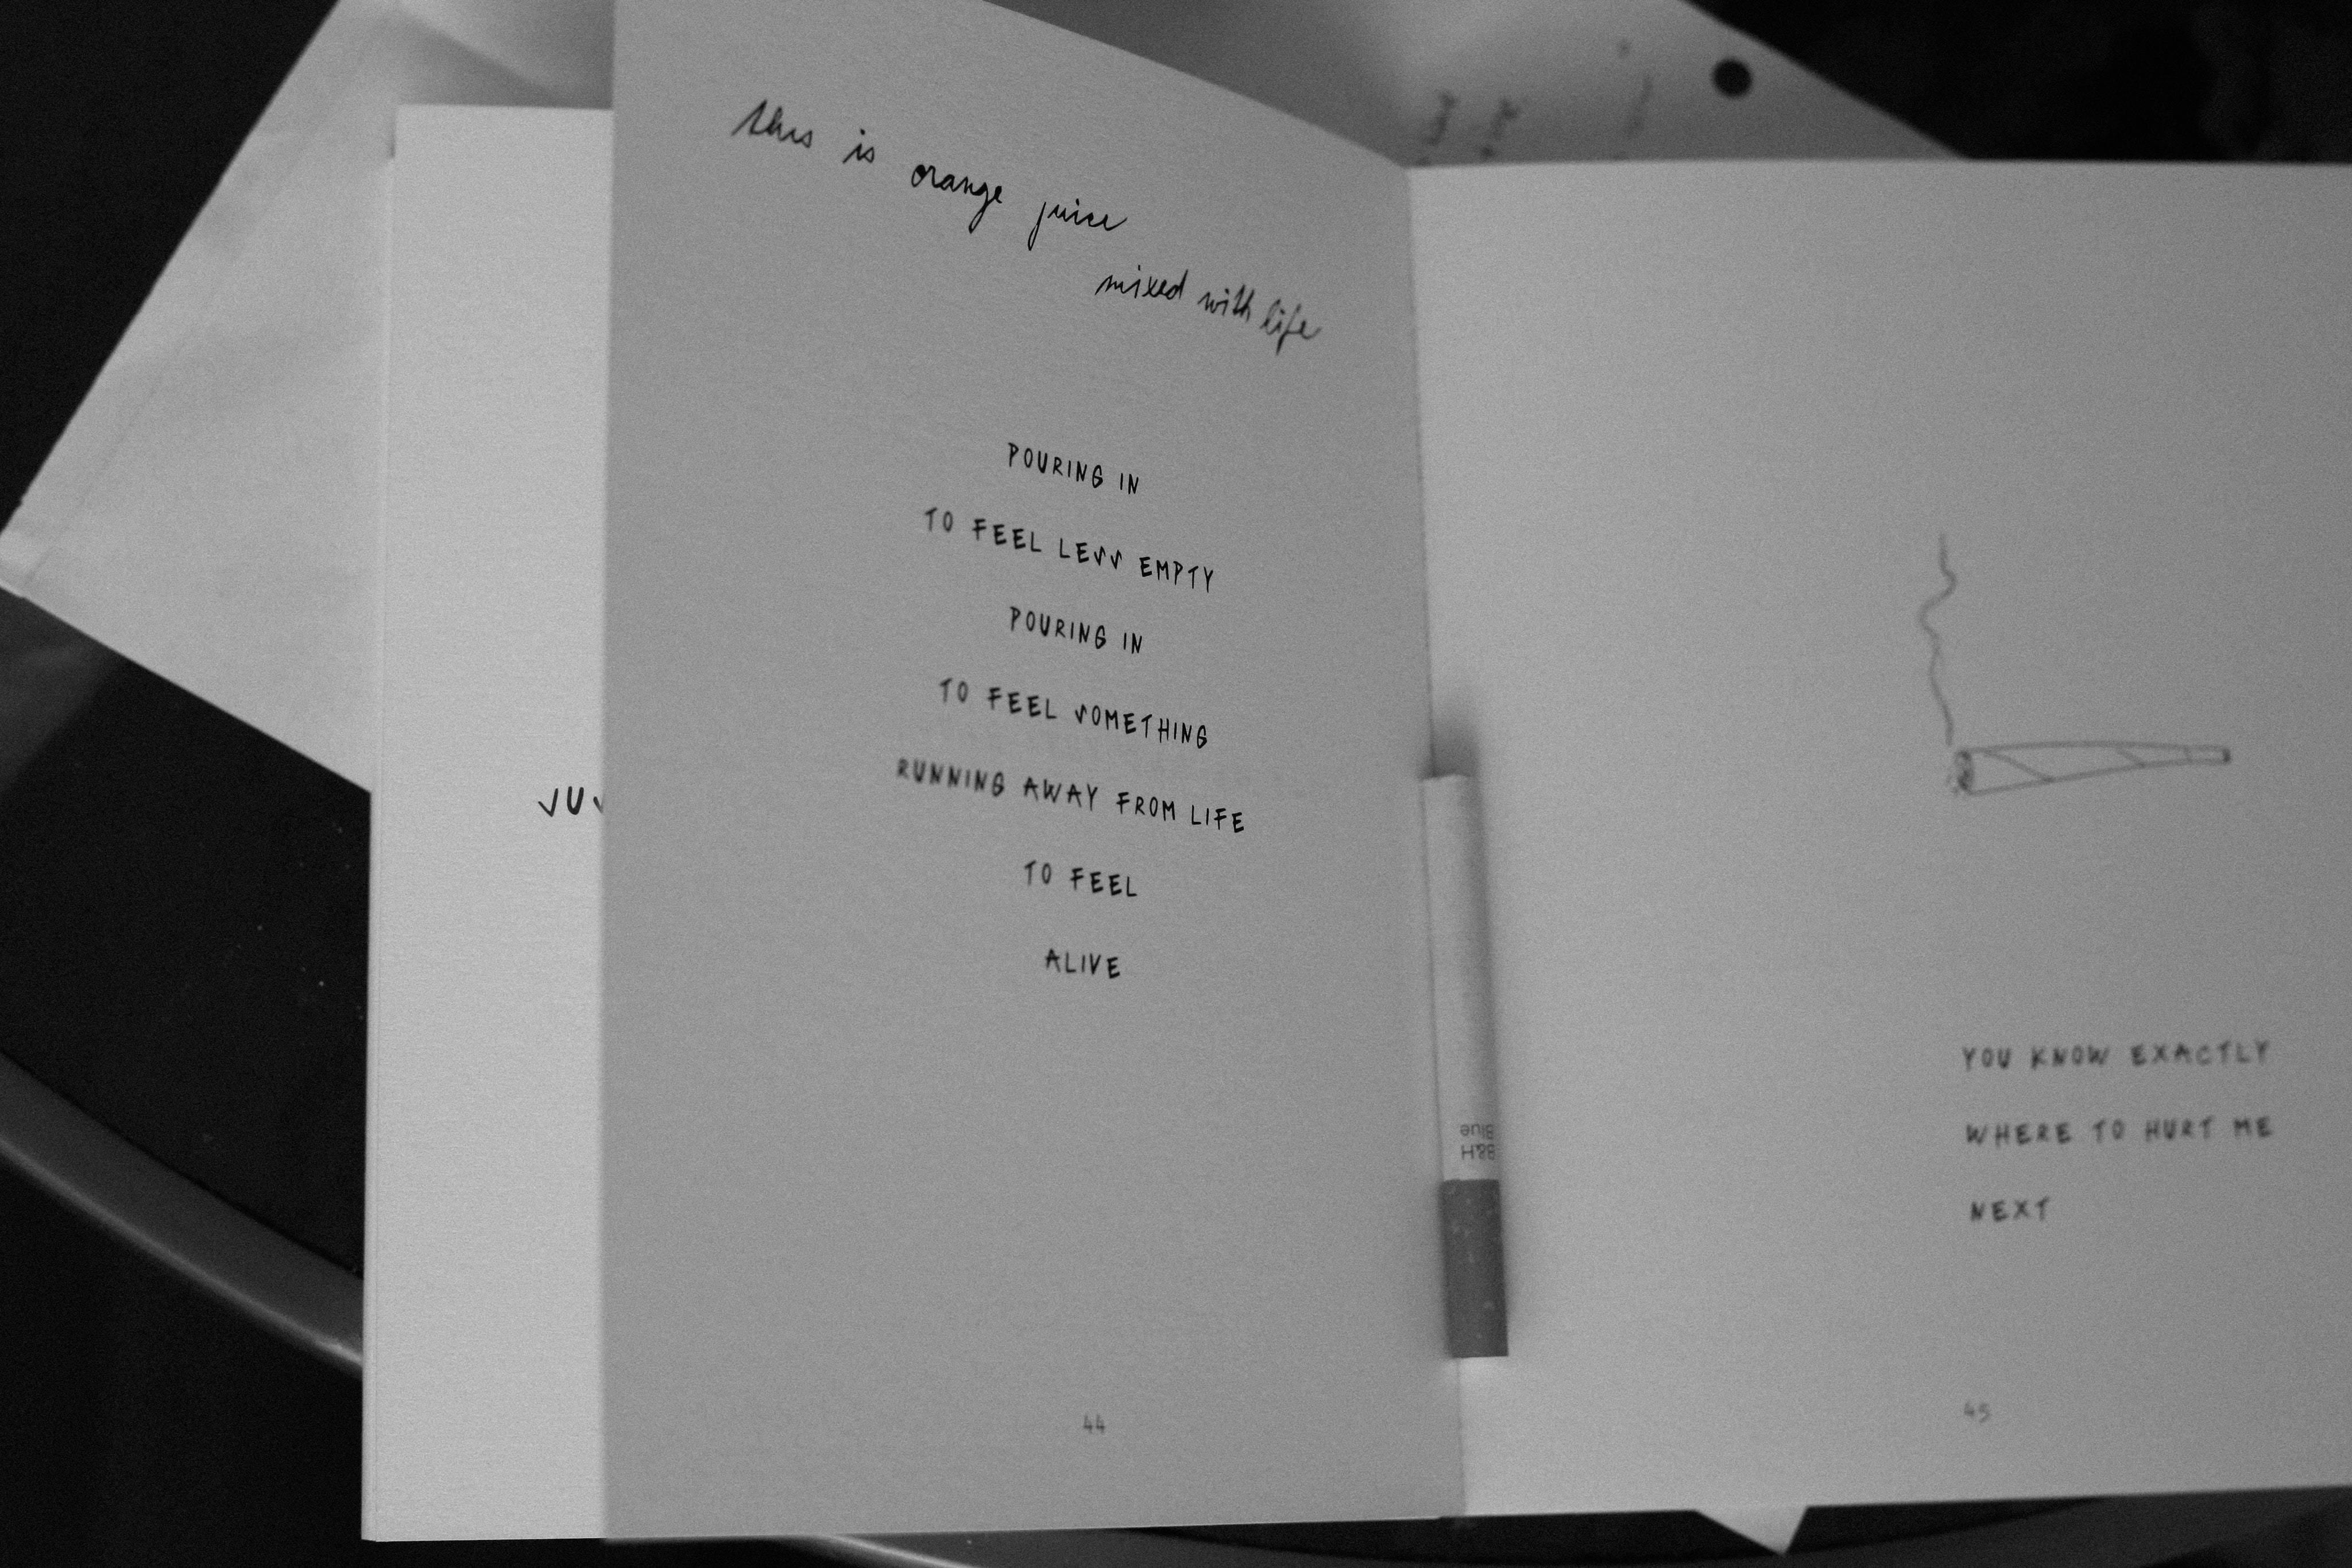 this is orange juice
mixed with life
POURING IN
TO FEEL LESS EMPTY
POURING IN
TO FEEL SOMETHING
RUNNING AWAY FROM LIFE
TO FEEL
ALIVE
44
B&H
Blue
YOU KNOW EXACTLY
WHERE TO HURT ME
NEXT
45